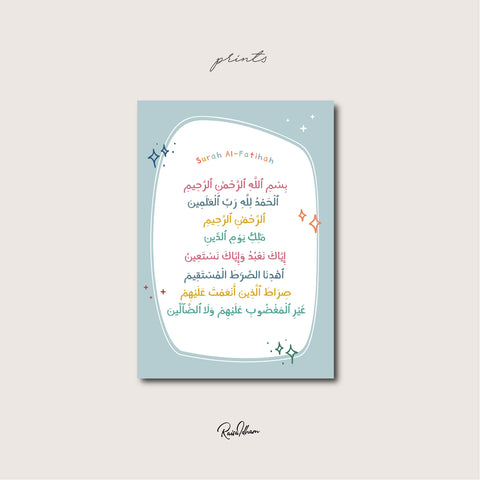 prints
Surah Al-Fatihah
بِسْمِ ٱللَّهِ ٱلرَّحْمَٰنِ ٱلرَّحِيمِ
ٱلْحَمْدُ لِلَّهِ رَبِّ ٱلْعَٰلَمِينَ
ٱلرَّحْمَٰنِ ٱلرَّحِيمِ
مَٰلِكِ يَوْمِ ٱلدِّينِ
إِيَّاكَ نَعْبُدُ وَإِيَّاكَ نَسْتَعِينُ
ٱهْدِنَا ٱلصِّرَٰطَ ٱلْمُسْتَقِيمَ
صِرَٰطَ ٱلَّذِينَ أَنْعَمْتَ عَلَيْهِمْ
غَيْرِ ٱلْمَغْضُوبِ عَلَيْهِمْ وَلَا ٱلضَّآلِّينَ